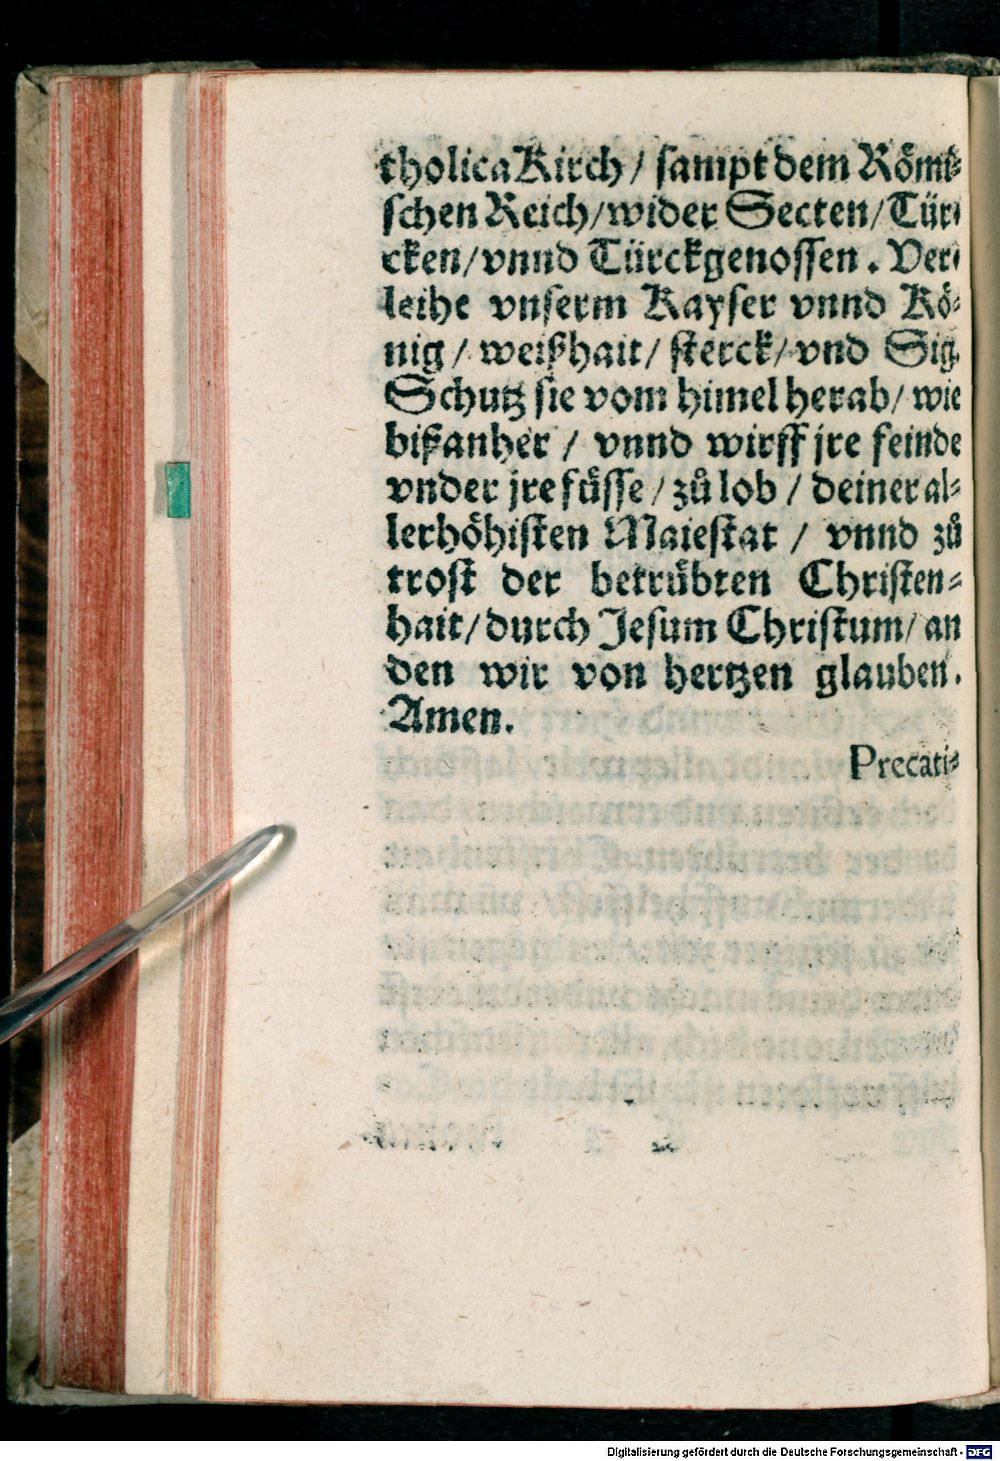 tholica Kirch / sampt dem Römi-
schen Reich / wider Secten / Tür-
cken / vnnd Türckgenossen . Ver-
leihe vnserm Kayser vnnd Kö-
nig / weißhait / sterck / vnd Sig.
Schutz sie vom himel herab / wie
bißanher / vnnd wirff jre feinde
vnder jre füsse / zů lob / deiner al-
lerhöhisten Maiestat / vnnd zů
trost der betrübten Christen-
hait / durch Jesum Christum / an
den wir von hertzen glauben.
Amen.
Precati-
Digitalisierung gefördert durch die Deutsche Forschungsgemeinschaft - DFG